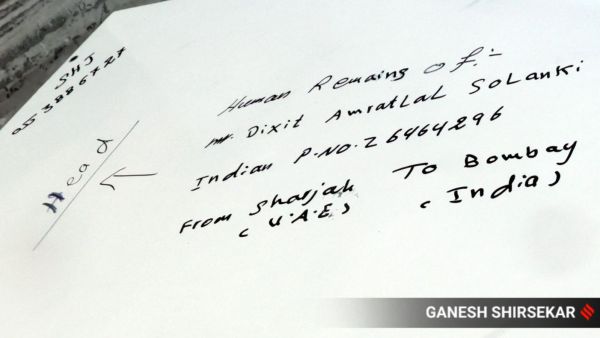 SHJ
Human Remaing Of:-
mr. Dixit Amratlal Solanki
Indian P.NO. Z6464296
From Sharjah To Bombay
(U.A.E) (India)
Head
GANESH SHIRSEKAR